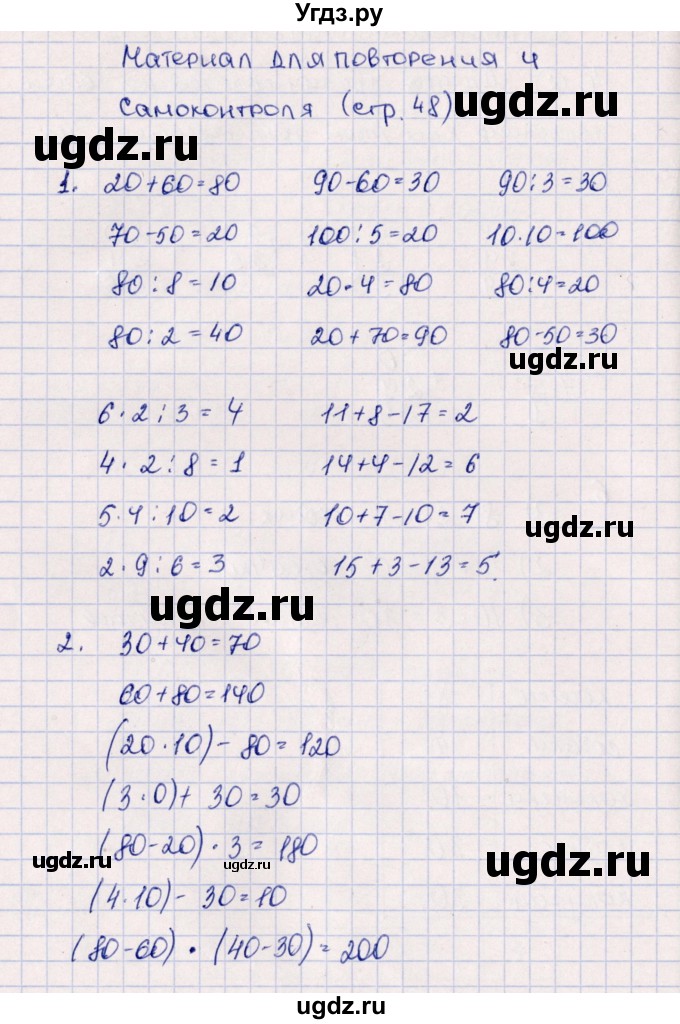 Угдз.ру
Материал для повторения и
самоконтроля (стр. 48)
ugdz.ru
ugdz.ru
1. 20+60=80 90-60=30 90:3=30
70-50=20 100:5=20 10·10=100
80:8=10 20·4=80 80:4=20
80:2=40 20+70=90 80-50=30
ugdz.ru
6·2:3=4 11+8-17=2
4·2:8=1 14+4-12=6
5·4:10=2 10+7-10=7
ugdz.ru
2·9:6=3 15+3-13=5.
ugdz.ru
2. 30+40=70
60+80=140
(20·10)-80=120
(3·0)+30=30
(80-20)·3=180
ugdz.ru
ugdz.ru
ugdz.ru
(4·10)-30=10
(80-60)·(40-30)=200
ugdz.ru